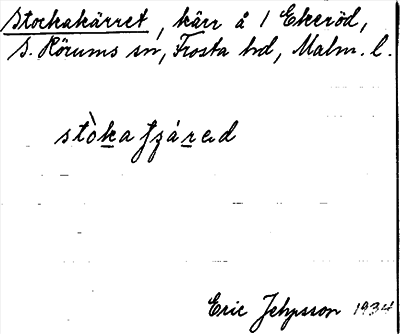 Stockakärret, kärr å 1 Ekeröd,
S. Rörums sn, Frosta hd, Malm. l.
stòka fzáred
Eric Jehpsson 1934